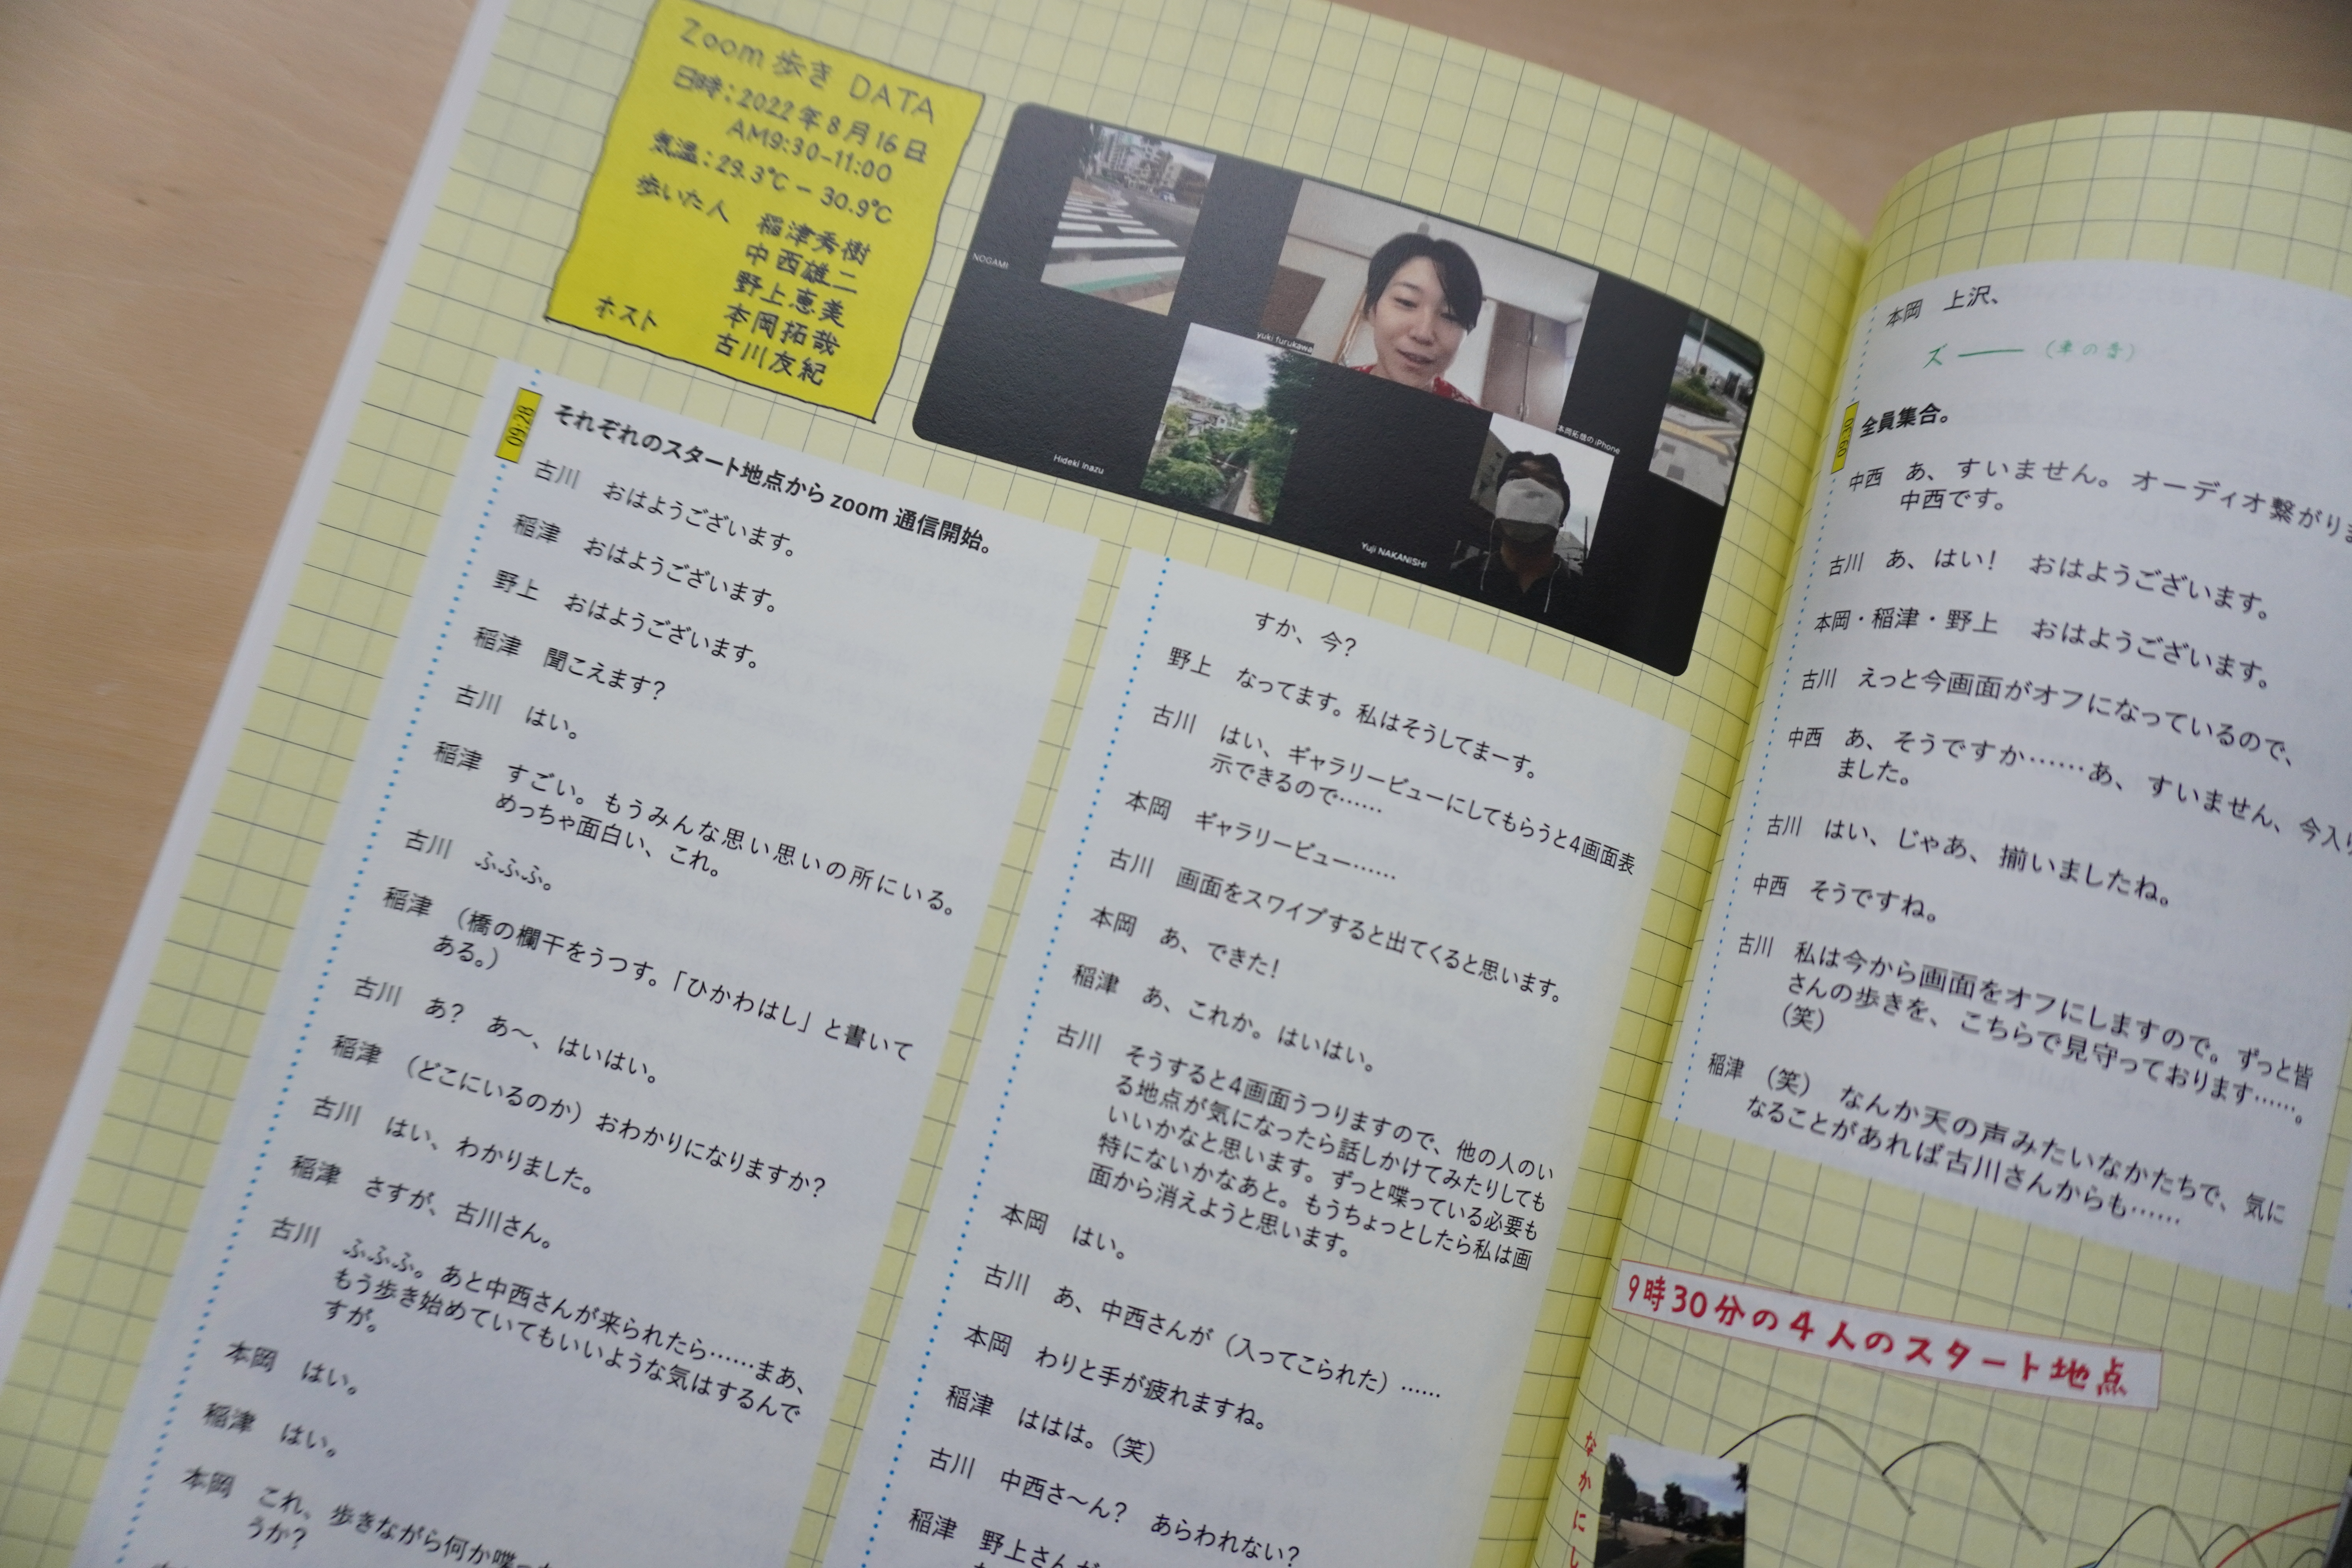 Zoom 歩き DATA
日時：2022年8月16日
AM9:30-11:00
気温：29.3℃ － 30.9℃
歩いた人 稲津秀樹
中西雄二
野上恵美
本岡拓哉
ホスト 古川友紀
NOGAMI
yuki furukawa
本岡拓哉の iPhone
Hideki Inazu
Yuji NAKANISHI
09:28 それぞれのスタート地点から zoom 通信開始。
古川 おはようございます。
稲津 おはようございます。
野上 おはようございます。
稲津 聞こえます？
古川 はい。
稲津 すごい。もうみんな思い思いの所にいる。
めっちゃ面白い、これ。
古川 ふふふ。
稲津 （橋の欄干をうつす。「ひかわはし」と書いて
ある。）
古川 あ？ あ〜、はいはい。
稲津 （どこにいるのか）おわかりになりますか？
古川 はい、わかりました。
稲津 さすが、古川さん。
古川 ふふふ。あと中西さんが来られたら……まあ、
もう歩き始めていてもいいような気はするんで
すが。
本岡 はい。
稲津 はい。
本岡 これ、歩きながら何か喋っ
うか？
すか、今？
野上 なってます。私はそうしてまーす。
古川 はい、ギャラリービューにしてもらうと4画面表
示できるので……
本岡 ギャラリービュー……
古川 画面をスワイプすると出てくると思います。
本岡 あ、できた！
稲津 あ、これか。はいはい。
古川 そうすると4画面うつりますので、他の人のい
る地点が気になったら話しかけてみたりしても
いいかなと思います。ずっと喋っている必要も
特にないかなあと。もうちょっとしたら私は画
面から消えようと思います。
本岡 はい。
古川 あ、中西さんが（入ってこられた）……
本岡 わりと手が疲れますね。
稲津 ははは。（笑）
古川 中西さ〜ん？ あらわれない？
稲津 野上さんが
本岡 上沢、
ズ―― （車の音）
09:30 全員集合。
中西 あ、すいません。オーディオ繋がりま
中西です。
古川 あ、はい！ おはようございます。
本岡・稲津・野上 おはようございます。
古川 えっと今画面がオフになっているので、
中西 あ、そうですか……あ、すいません、今入り
ました。
古川 はい、じゃあ、揃いましたね。
中西 そうですね。
古川 私は今から画面をオフにしますので。ずっと皆
さんの歩きを、こちらで見守っております……。
（笑）
稲津 （笑） なんか天の声みたいなかたちで、気に
なることがあれば古川さんからも……
9時30分の4人のスタート地点
なかにし